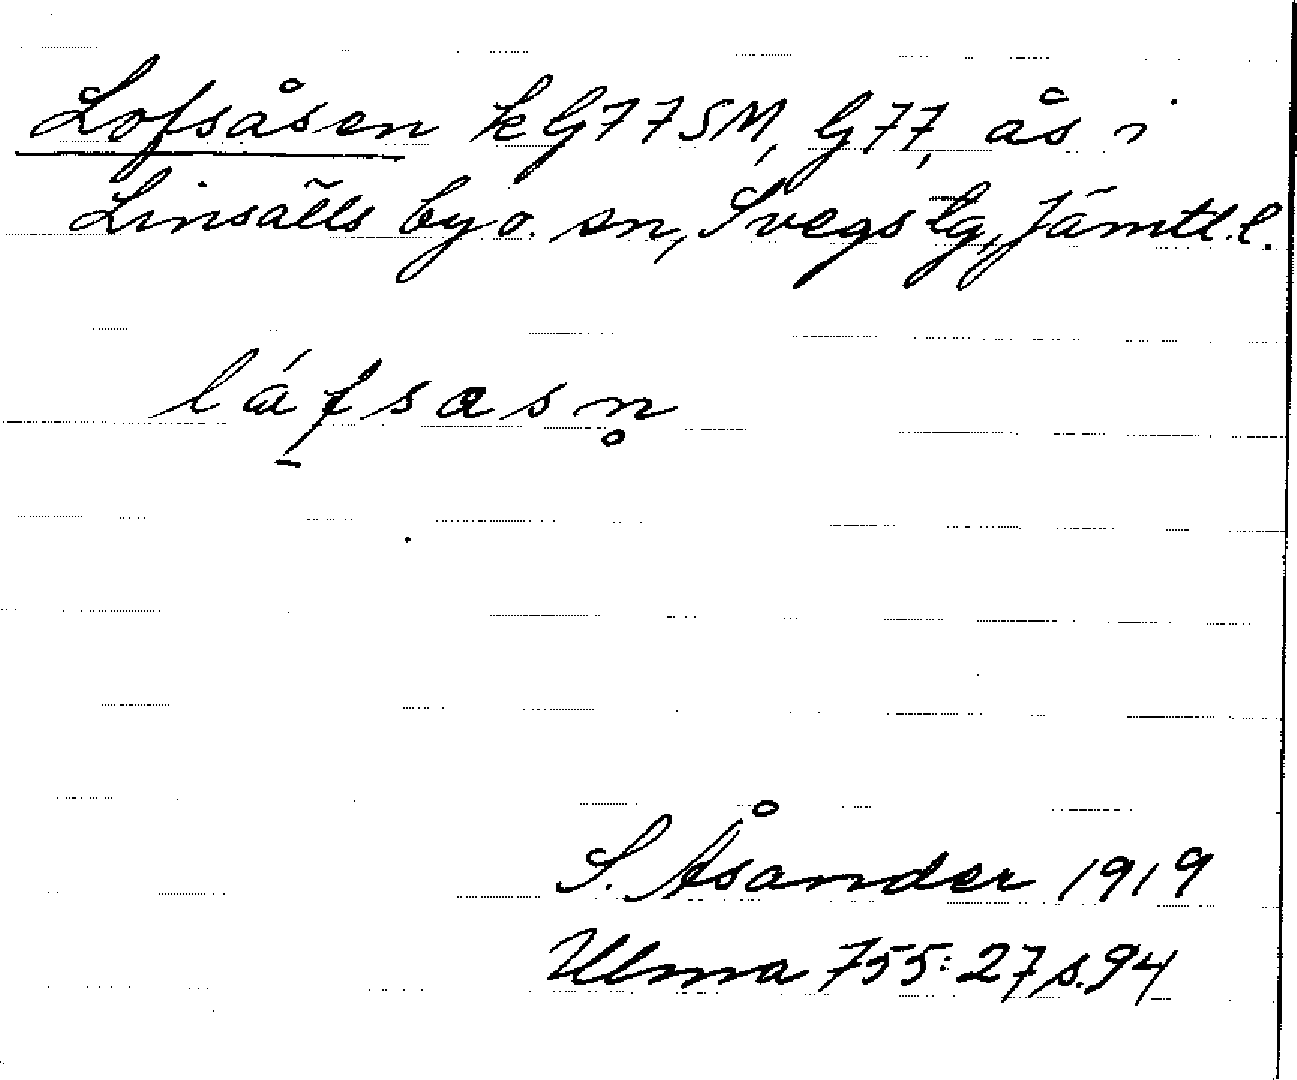 Lofsåsen kG77SM, G77, ås i
Linsälls by o. sn, Svegs tg, Jämtl.l.
láfsasn̥
S. Åsander 1919
Ulma 755:27 s.94